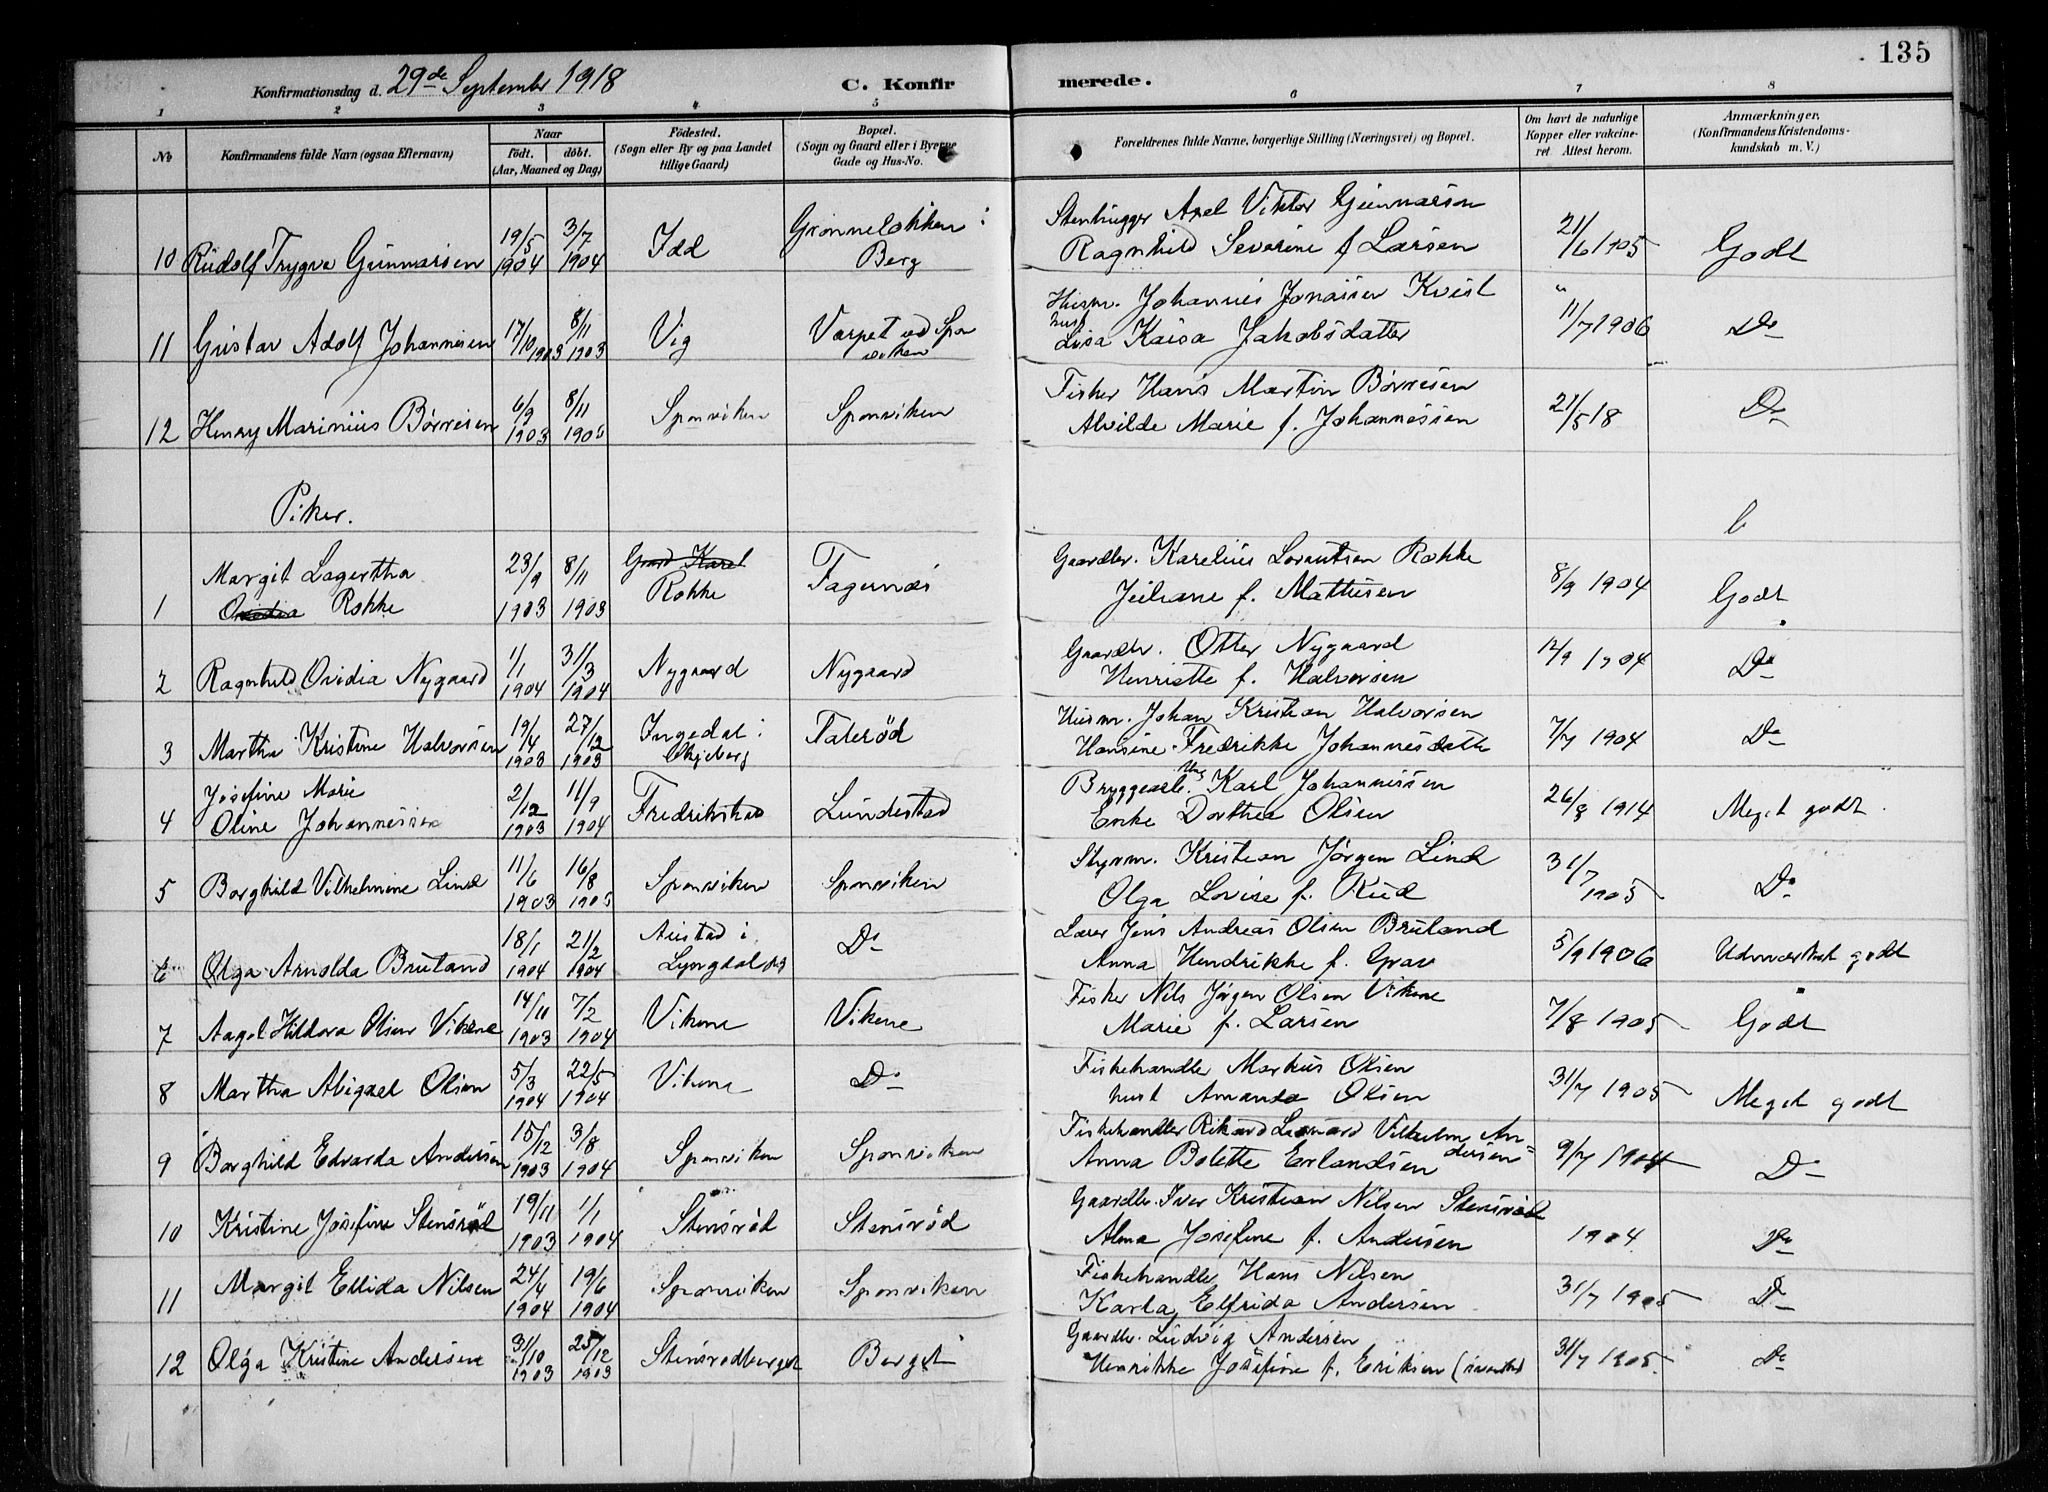 135
Konfirmationsdag d. 29de September 1918
C. Konfirmerede.
1 2 3 4 5 6 7 8
No
Konfirmandens fulde Navn (ogsaa Efternavn)
Naar
Födt. döbt.
(Aar, Maaned og Dag)
Födested.
(Sogn eller By og paa Landet
tillige Gaard)
Bopæl.
(Sogn og Gaard eller i Byerne
Gade og Hus-No.
Forældrenes fulde Navne, borgerlige Stilling (Næringsvei) og Bopæl.
Om havt de naturlige
Kopper eller vakcine-
ret. Attest herom.
Anmærkninger,
(Konfirmandens Kristendoms-
kundskab m. V.)
10 Rudolf Trygve Gunnarsen 19/5 1904 3/7 1904 Idd Grønneløkken i Berg
Stenhugger Axel Viktor Gunnarson
Ragnhild Severine f Larsen 21/6 1905 Godt
11 Gustav Adolf Johannesen 17/10 1903 8/11 1903 Vig Varpet ved Sponviken
Husm. Johannes Jonassen Kvist
hust Lisa Kaisa Jakobsdatter 11/7 1906 Do
12 Henry Marinius Børresen 6/9 1903 8/11 1905 Sponviken Sponviken
Fisker Hans Martin Børresen
Alvilde Marie f. Johannessen 21/5 18 Do
Piker.
1 Margit Lagertha
Rokke 23/9 1903 8/11 1903 Rokke Fagernæs
Gaardbr. Karelius Lorentsen Rokke
Juliane f. Mathisen 8/9 1904 Godt
2 Ragnhild Ovidia Nygaard 1/1 1904 31/3 1904 Nygaard Nygaard
Gaardbr. Otter Nygaard
Henriette f. Halvorsen 12/9 1904 Do
3 Martha Kristine Halvorsen 19/4 1903 27/12 1903 Ingedal i Skjeberg Taterød
Husm. Johan Kristian Halvorsen
Hansine Fredrikke Johannesdatte 7/7 1904 Do
4 Josefine Marie
Oline Johannessen 2/12 1903 11/9 1904 Fredrikstad Lundestad
Bryggearb. Karl Johannessen
Enke Dorthea Olsen 26/8 1914 Meget godt
5 Borghild Vilhelmine Lind 11/6 1903 16/8 1905 Sponviken Sponviken
Styrm. Kristian Jørgen Lind
Olga Lovise f. Rud 31/7 1905 Do
6 Olga Arnolda Bruland 18/1 1904 21/2 1904 Austad i Lyngdal Do
Lærer Jens Andreas Olsen Bruland
Anna Hendrikke f. Grav 5/9 1906 Udmærket godt
7 Aagot Hildora Olsen Vikene 14/11 1903 7/2 1904 Vikene Vikene
Fisker Nils Jørgen Olsen Vikene
Marie f. Larsen 7/8 1905 Godt
8 Martha Abigael Olsen 5/3 1904 22/5 1904 Vikene Do
Fiskehandler Markus Olsen
hust Amanda Olsen 31/7 1905 Meget godt
9 Borghild Edvarda Andersen 15/12 1903 3/8 1904 Sponviken Sponviken
Fiskehandler Rikard Leonard Vilhelm Andersen
Anna Bolette Erlandsen 9/7 1904 Do
10 Kristine Josefine Stensrød 19/11 1903 1/1 1904 Stensrød Stensrød
Gaardbr. Iver Kristian Nilsen Stensrød
Alma Josefine f. Andersen 1904 Do
11 Margit Ellida Nilsen 24/4 1904 19/6 1904 Sponviken Sponviken
Fiskehandler Hans Nilsen
Karla Elfrida Andersen 31/7 1905 Do
12 Olga Kristine Andersen 31/10 1903 25/12 1903 Stensrødberget Berget
Gaardbr. Ludvig Andersen
Henrikke Josefine f. Eriksen 31/7 1905 Do